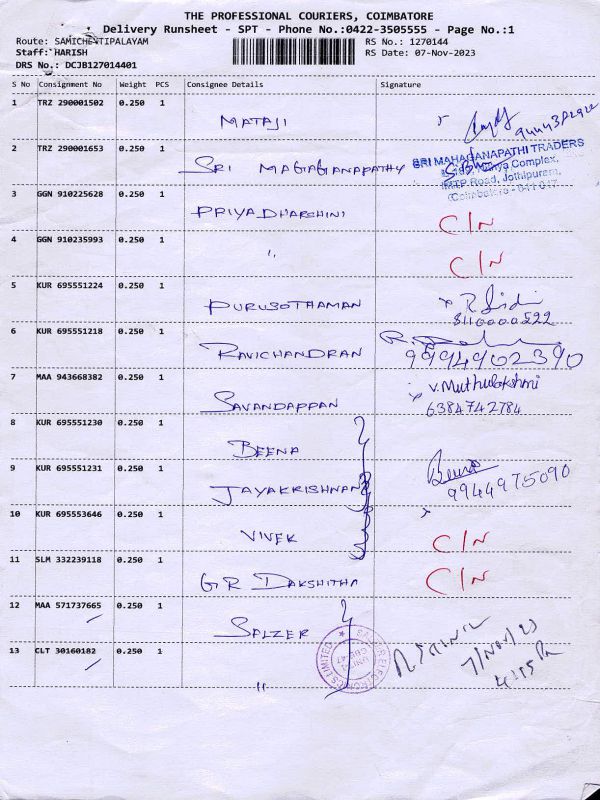 THE PROFESSIONAL COURIERS, COIMBATORE
Delivery Runsheet - SPT - Phone No.:0422-3505555 - Page No.:1
Route: SAMICHETTIPALAYAM RS No.: 1270144
Staff: HARISH RS Date: 07-Nov-2023
DRS No.: DCJB127014401
S No Consignment No Weight PCS Consignee Details Signature
1 TRZ 290001502 0.250 1 MATAJI
2 TRZ 290001653 0.250 1 SRI MAGAGANAPATHY
SRI MAHAGANAPATHI TRADERS
Complex,
Road, Jothipuram,
Coimbatore - 641 047.
3 GGN 910225628 0.250 1 PRIYADHARSHINI C/N
4 GGN 910235993 0.250 1 " C/N
5 KUR 695551224 0.250 1 PURUSOTHAMAN
6 KUR 695551218 0.250 1 RAVICHANDRAN 9994902390
7 MAA 943668382 0.250 1 SAVANDAPPAN V. Muthulakshmi
6384742784
8 KUR 695551230 0.250 1 BEENA
9 KUR 695551231 0.250 1 JAYAKRISHNAN Beena
9944975090
10 KUR 695553646 0.250 1 VIVEK C/N
11 SLM 332239118 0.250 1 G.R DAKSHITHA C/N
12 MAA 571737665 0.250 1 SALZER
13 CLT 30160182 0.250 1 "
7/NOV/23